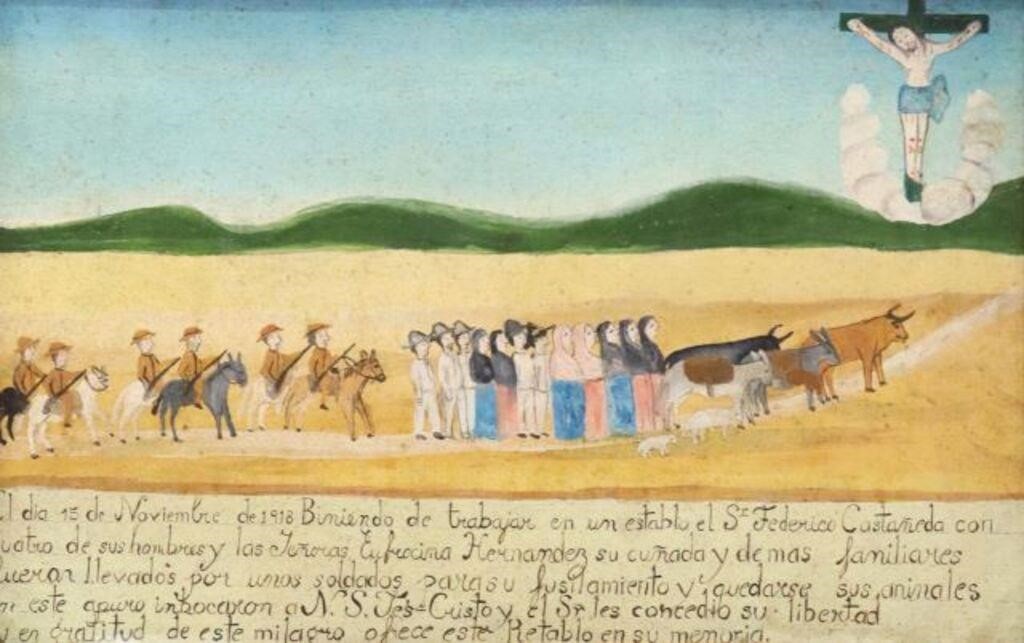 l dia 15 de Noviembre de 1918 Biniendo de trabajar en un establo el Sr Federico Castañeda con
uatro de sus hombres y las Señoras, Eufrocina Hernandez su cuñada y demas familiares
ueron llevados por unos soldados para su fusilamiento y quedarse sus animales
n este apuro inbocaron a N. S. Jes= Cristo y el Sr les concedio su libertad
y en gratitud de este milagro ofrece este Retablo en su memoria.